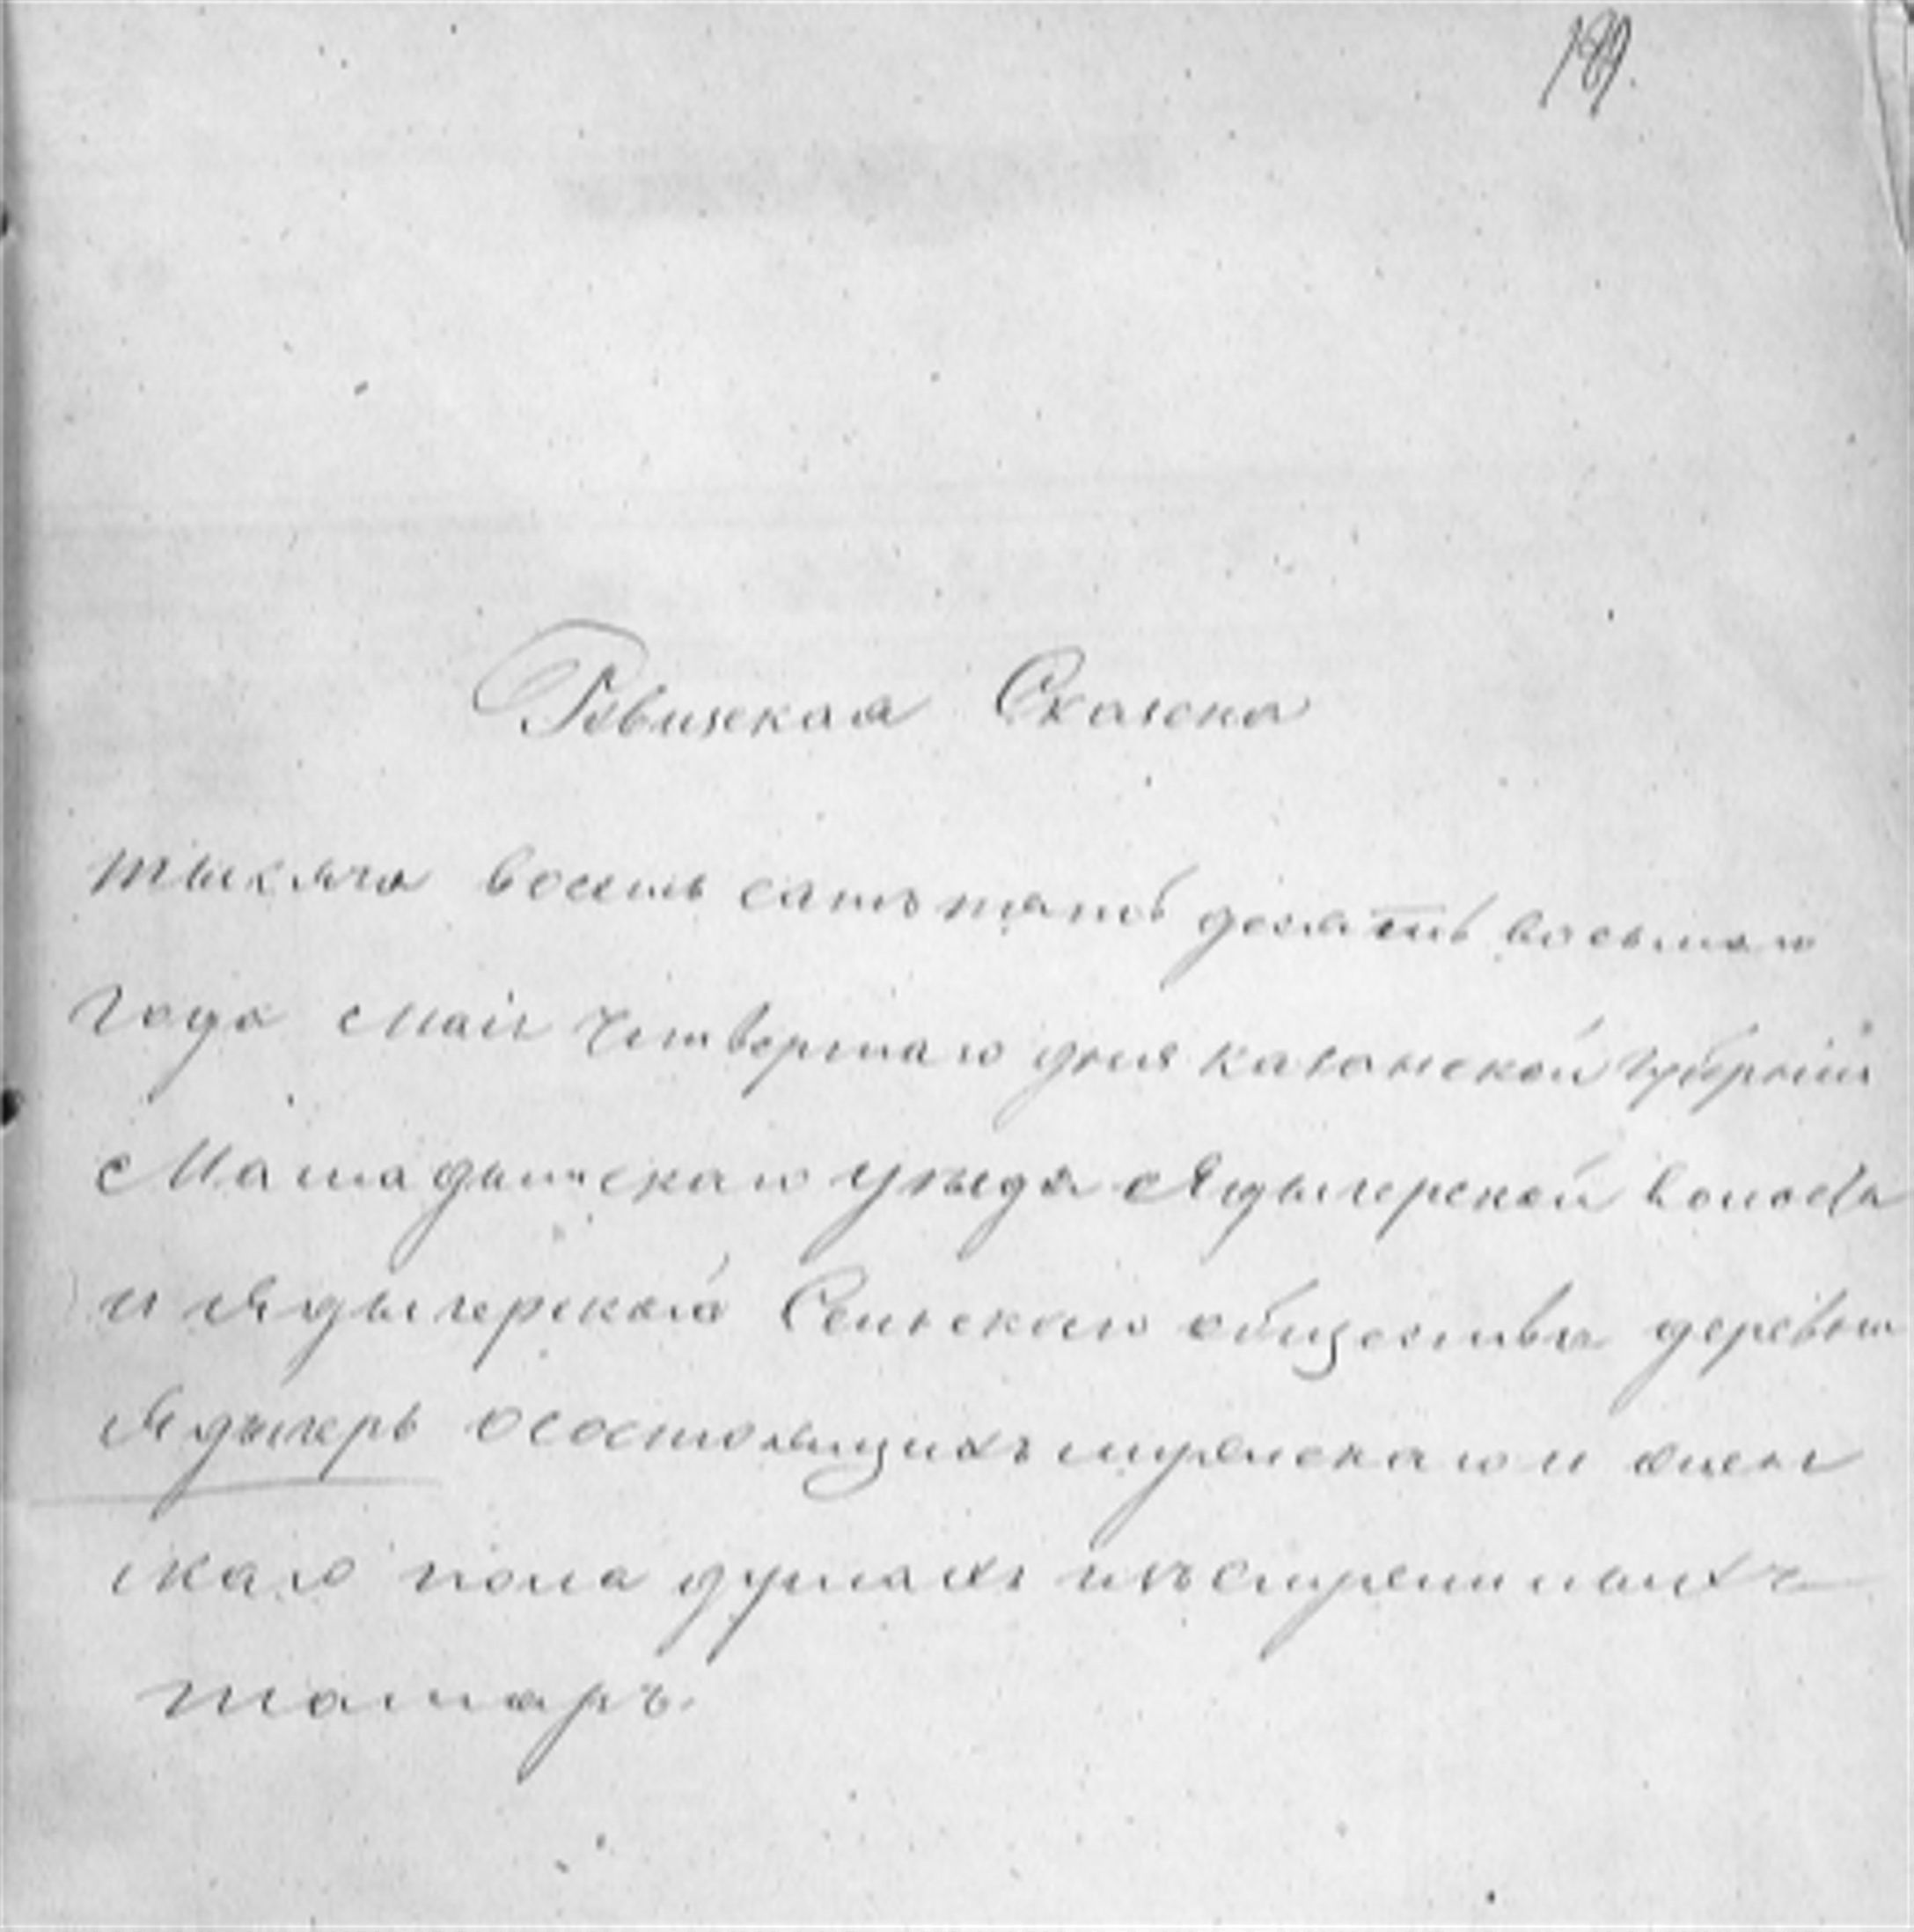 189.
Ревизская Сказка
тысяча восемь сатъ пятъ десятъ восьмаго
года Маія Четвертаго дня казанской губерніи
Мамадышскаго уѣзда Ядыгерской волости
и Ядыгерскаго Сельскаго общества деревни
Ядыгерь о состоящихъ мужескаго и женъ
скаго пола душахъ изъ служилыхъ
татаръ.